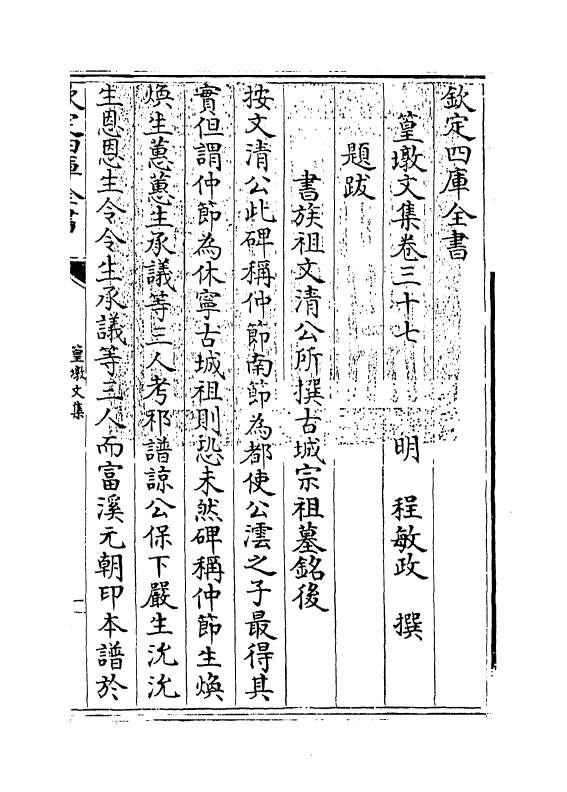 欽定四庫全書
篁墩文集卷三十七
明 程敏政 撰
題跋
書族祖文清公所撰古城宗祖墓銘後
按文清公此碑稱仲節南節為都使公澐之子最得其
實但謂仲節為休寧古城祖則恐未然碑稱仲節生煥
煥生蕙蕙生承議等三人考祁譜諒公保下嚴生沇沇
生恩恩生令令生承議等三人而富溪元朝印本譜於
欽定四庫全書
篁墩文集
一